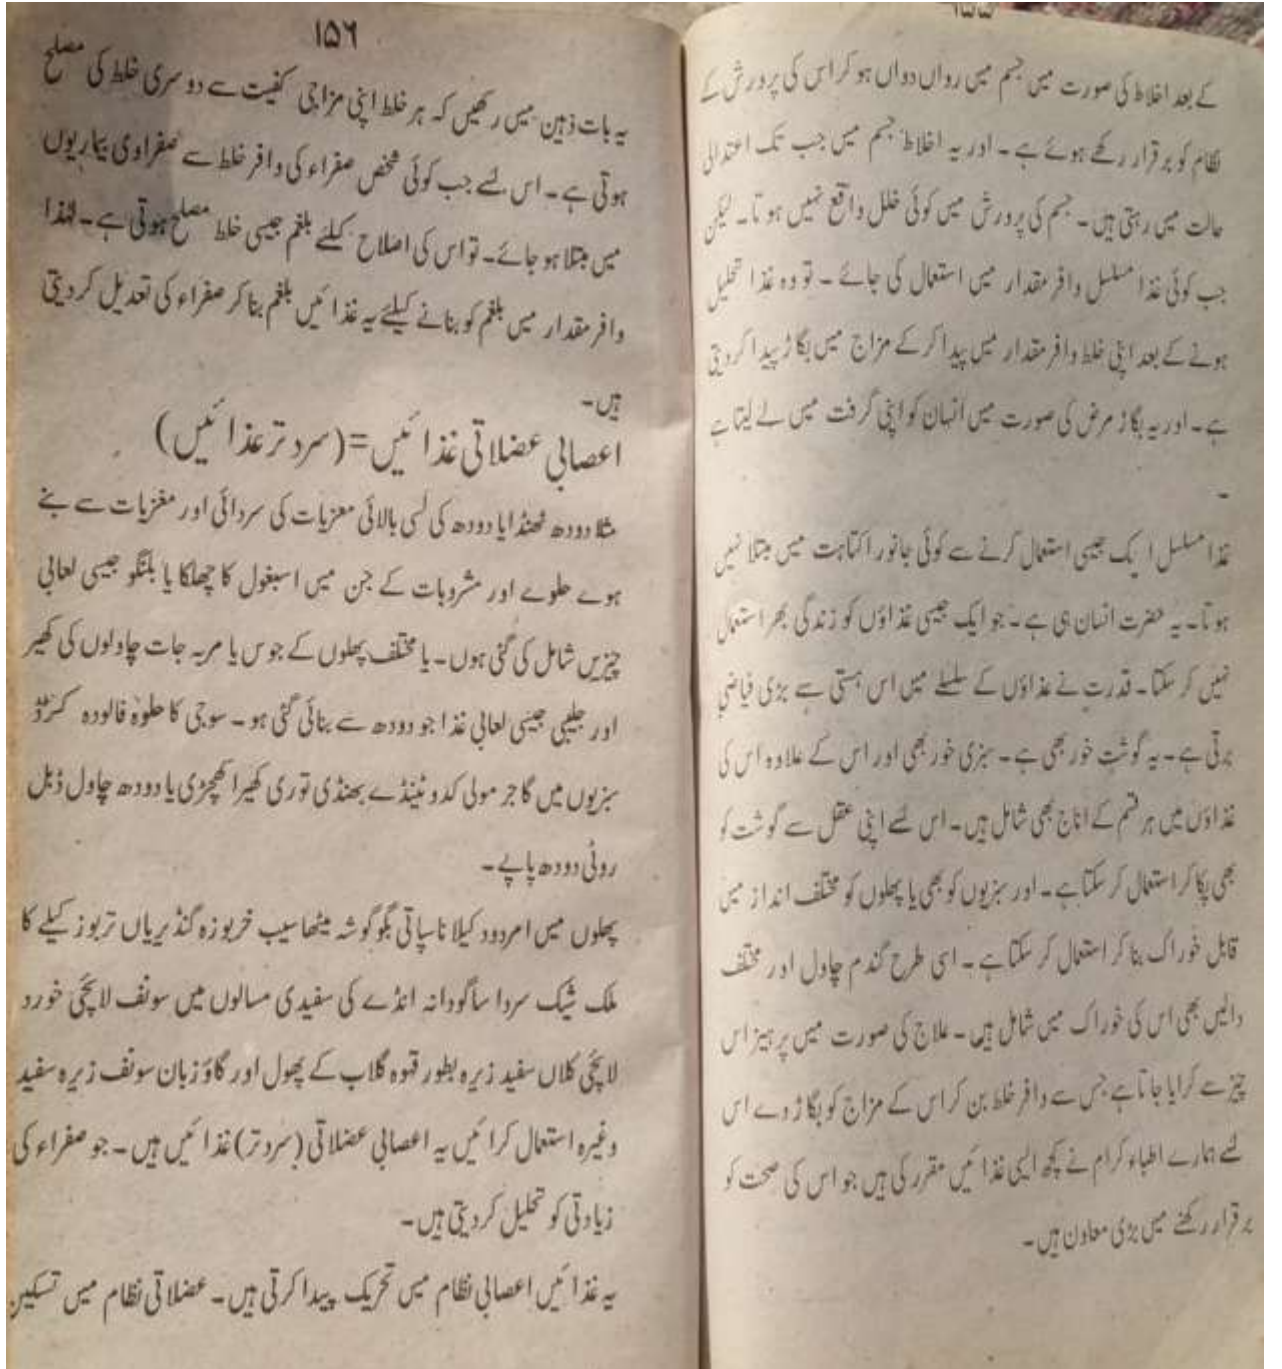 ۱۵۵
کے بعد اخلاط کی صورت میں جسم میں رواں دواں ہو کر اس کی پرورش کے
نظام کو برقرار رکھے ہوئے ہے۔ اور یہ اخلاط جسم میں جب تک اعتدالی
حالت میں رہتی ہیں۔ جسم کی پرورش میں کوئی خلل واقع نہیں ہوتا۔ لیکن
جب کوئی غذا مسلسل وافر مقدار میں استعمال کی جائے ۔ تو وہ غذا تحلیل
ہونے کے بعد اپنی خلط وافر مقدار میں پیدا کر کے مزاج میں بگاڑ پیدا کر دیتی
ہے۔ اور یہ بگاڑ مرض کی صورت میں انسان کو اپنی گرفت میں لے لیتا ہے
۔
غذا مسلسل ایک جیسی استعمال کرنے سے کوئی جانور اکتاہت میں مبتلا نہیں
ہوتا۔ یہ حضرت انسان ہی ہے۔ جو ایک جیسی غذاؤں کو زندگی بھر استعمال
نہیں کر سکتا۔ قدرت نے غذاؤں کے سلسلے میں اس ہستی سے بڑی فیاضی
برتی ہے۔ یہ گوشت خور بھی ہے۔ سبزی خور بھی اور اس کے علاوہ اس کی
غذاؤں میں ہر قسم کے اناج بھی شامل ہیں۔ اس لئے اپنی عقل سے گوشت کو
بھی پکا کر استعمال کر سکتا ہے۔ اور سبزیوں کو بھی یا پھلوں کو مختلف انداز میں
قابل خوراک بنا کر استعمال کر سکتا ہے۔ اسی طرح گندم چاول اور مختلف
دالیں بھی اس کی خوراک میں شامل ہیں۔ علاج کی صورت میں پرہیز اس
چیز سے کرایا جاتا ہے جس سے وافر خلط بن کر اس کے مزاج کو بگاڑ دے اس
لئے ہمارے اطباء کرام نے کچھ ایسی غذائیں مقرر کی ہیں جو اس کی صحت کو
برقرار رکھنے میں بڑی معاون ہیں۔
۱۵۶
یہ بات ذہین میں رکھیں کہ ہر خلط اپنی مزاجی کفیت سے دوسری خلط کی مصلح
ہوتی ہے۔ اس لئے جب کوئی شخص صفراء کی وافر خلط سے صفراوی بیماریوں
میں مبتلا ہو جائے۔ تو اس کی اصلاح کیلئے بلغم جیسی خلط مصلح ہوتی ہے۔ لہٰذا
وافر مقدار میں بلغم کو بنانے کیلئے یہ غذائیں بلغم بنا کر صفراء کی تعدیل کر دیتی
ہیں۔
اعصابی عضلاتی غذائیں=(سرد تر غذائیں)
مثلا دودھ ٹھنڈا یا دودھ کی لسی بالائی معزیات کی سردائی اور مغزیات سے بنے
ہوے حلوے اور مشروبات کے جن میں اسبغول کا چھلکا یا بلنگو جیسی لعابی
چیزیں شامل کی گئی ہوں۔ یا مختلف پھلوں کے جوس یا مربہ جات چاولوں کی کھیر
اور جلیبی جیسی لعابی غذا جو دودھ سے بنائی گئی ہو۔ سوجی کا حلوہ فالودہ کسٹرڈ
سبزیوں میں گاجر مولی کدو ٹینڈے بھنڈی توری کھیرا کھچڑی یا دودھ چاول ڈبل
روٹی دودھ پاپے۔
پھلوں میں امردود کیلا ناسپاتی بگوگوشہ میٹھا سیب خربوزہ گنڈیریاں تربوز کیلے کا
ملک شیک سردا ساگودانہ انڈے کی سفیدی مسالوں میں سونف لاپچی خورد
لاپچی کلاں سفید زیرہ بطور قہوہ گلاب کے پھول اور گاؤ زبان سونف زیرہ سفید
وغیرہ استعمال کرائیں یہ اعصابی عضلاتی (سرد تر) غذائیں ہیں۔ جو صفراء کی
زیادتی کو تحلیل کر دیتی ہیں۔
یہ غذائیں اعصابی نظام میں تحریک پیدا کرتی ہیں۔ عضلاتی نظام میں تسکین